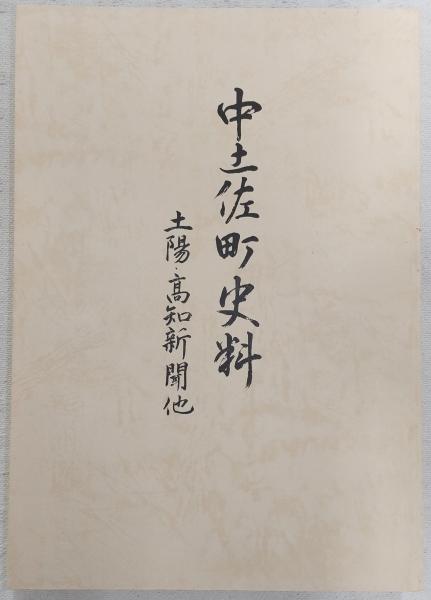 中土佐町史料
土陽・高知新聞他